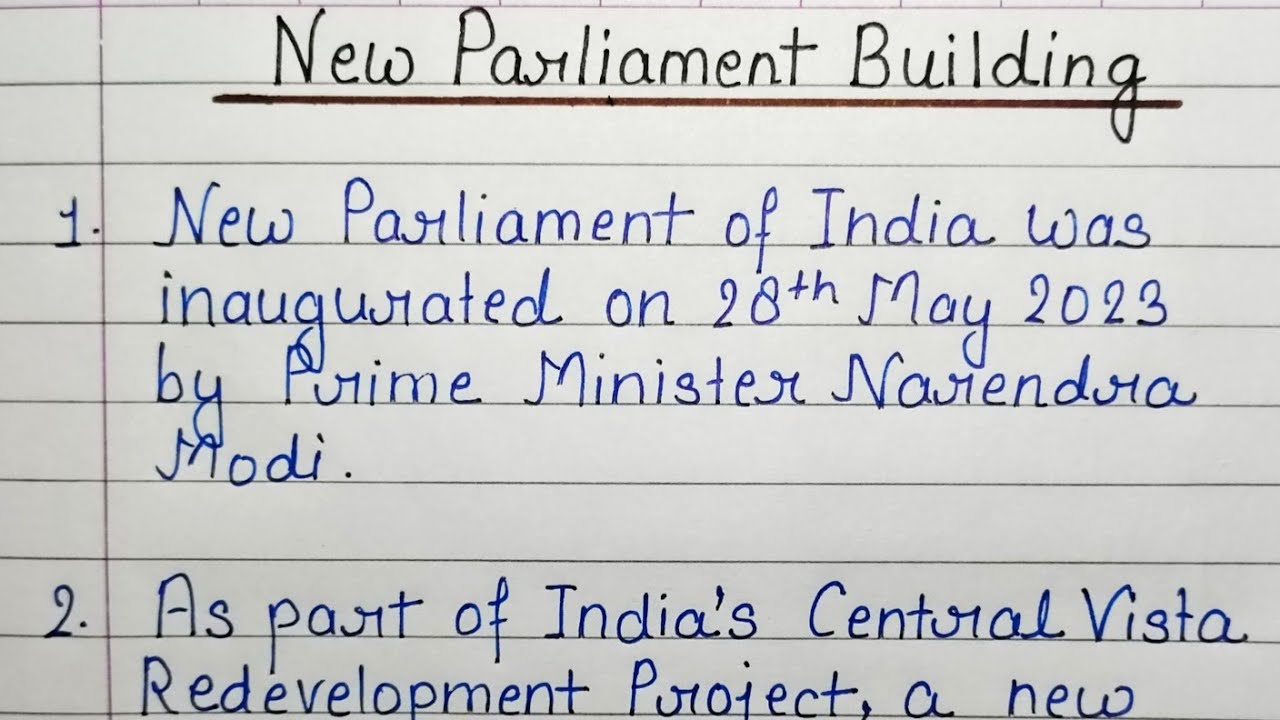 New Parliament Building
1. New Parliament of India was
inaugurated on 28th May 2023
by Prime Minister Narendra
Modi.
2. As part of India's Central Vista
Redevelopment Project, a new